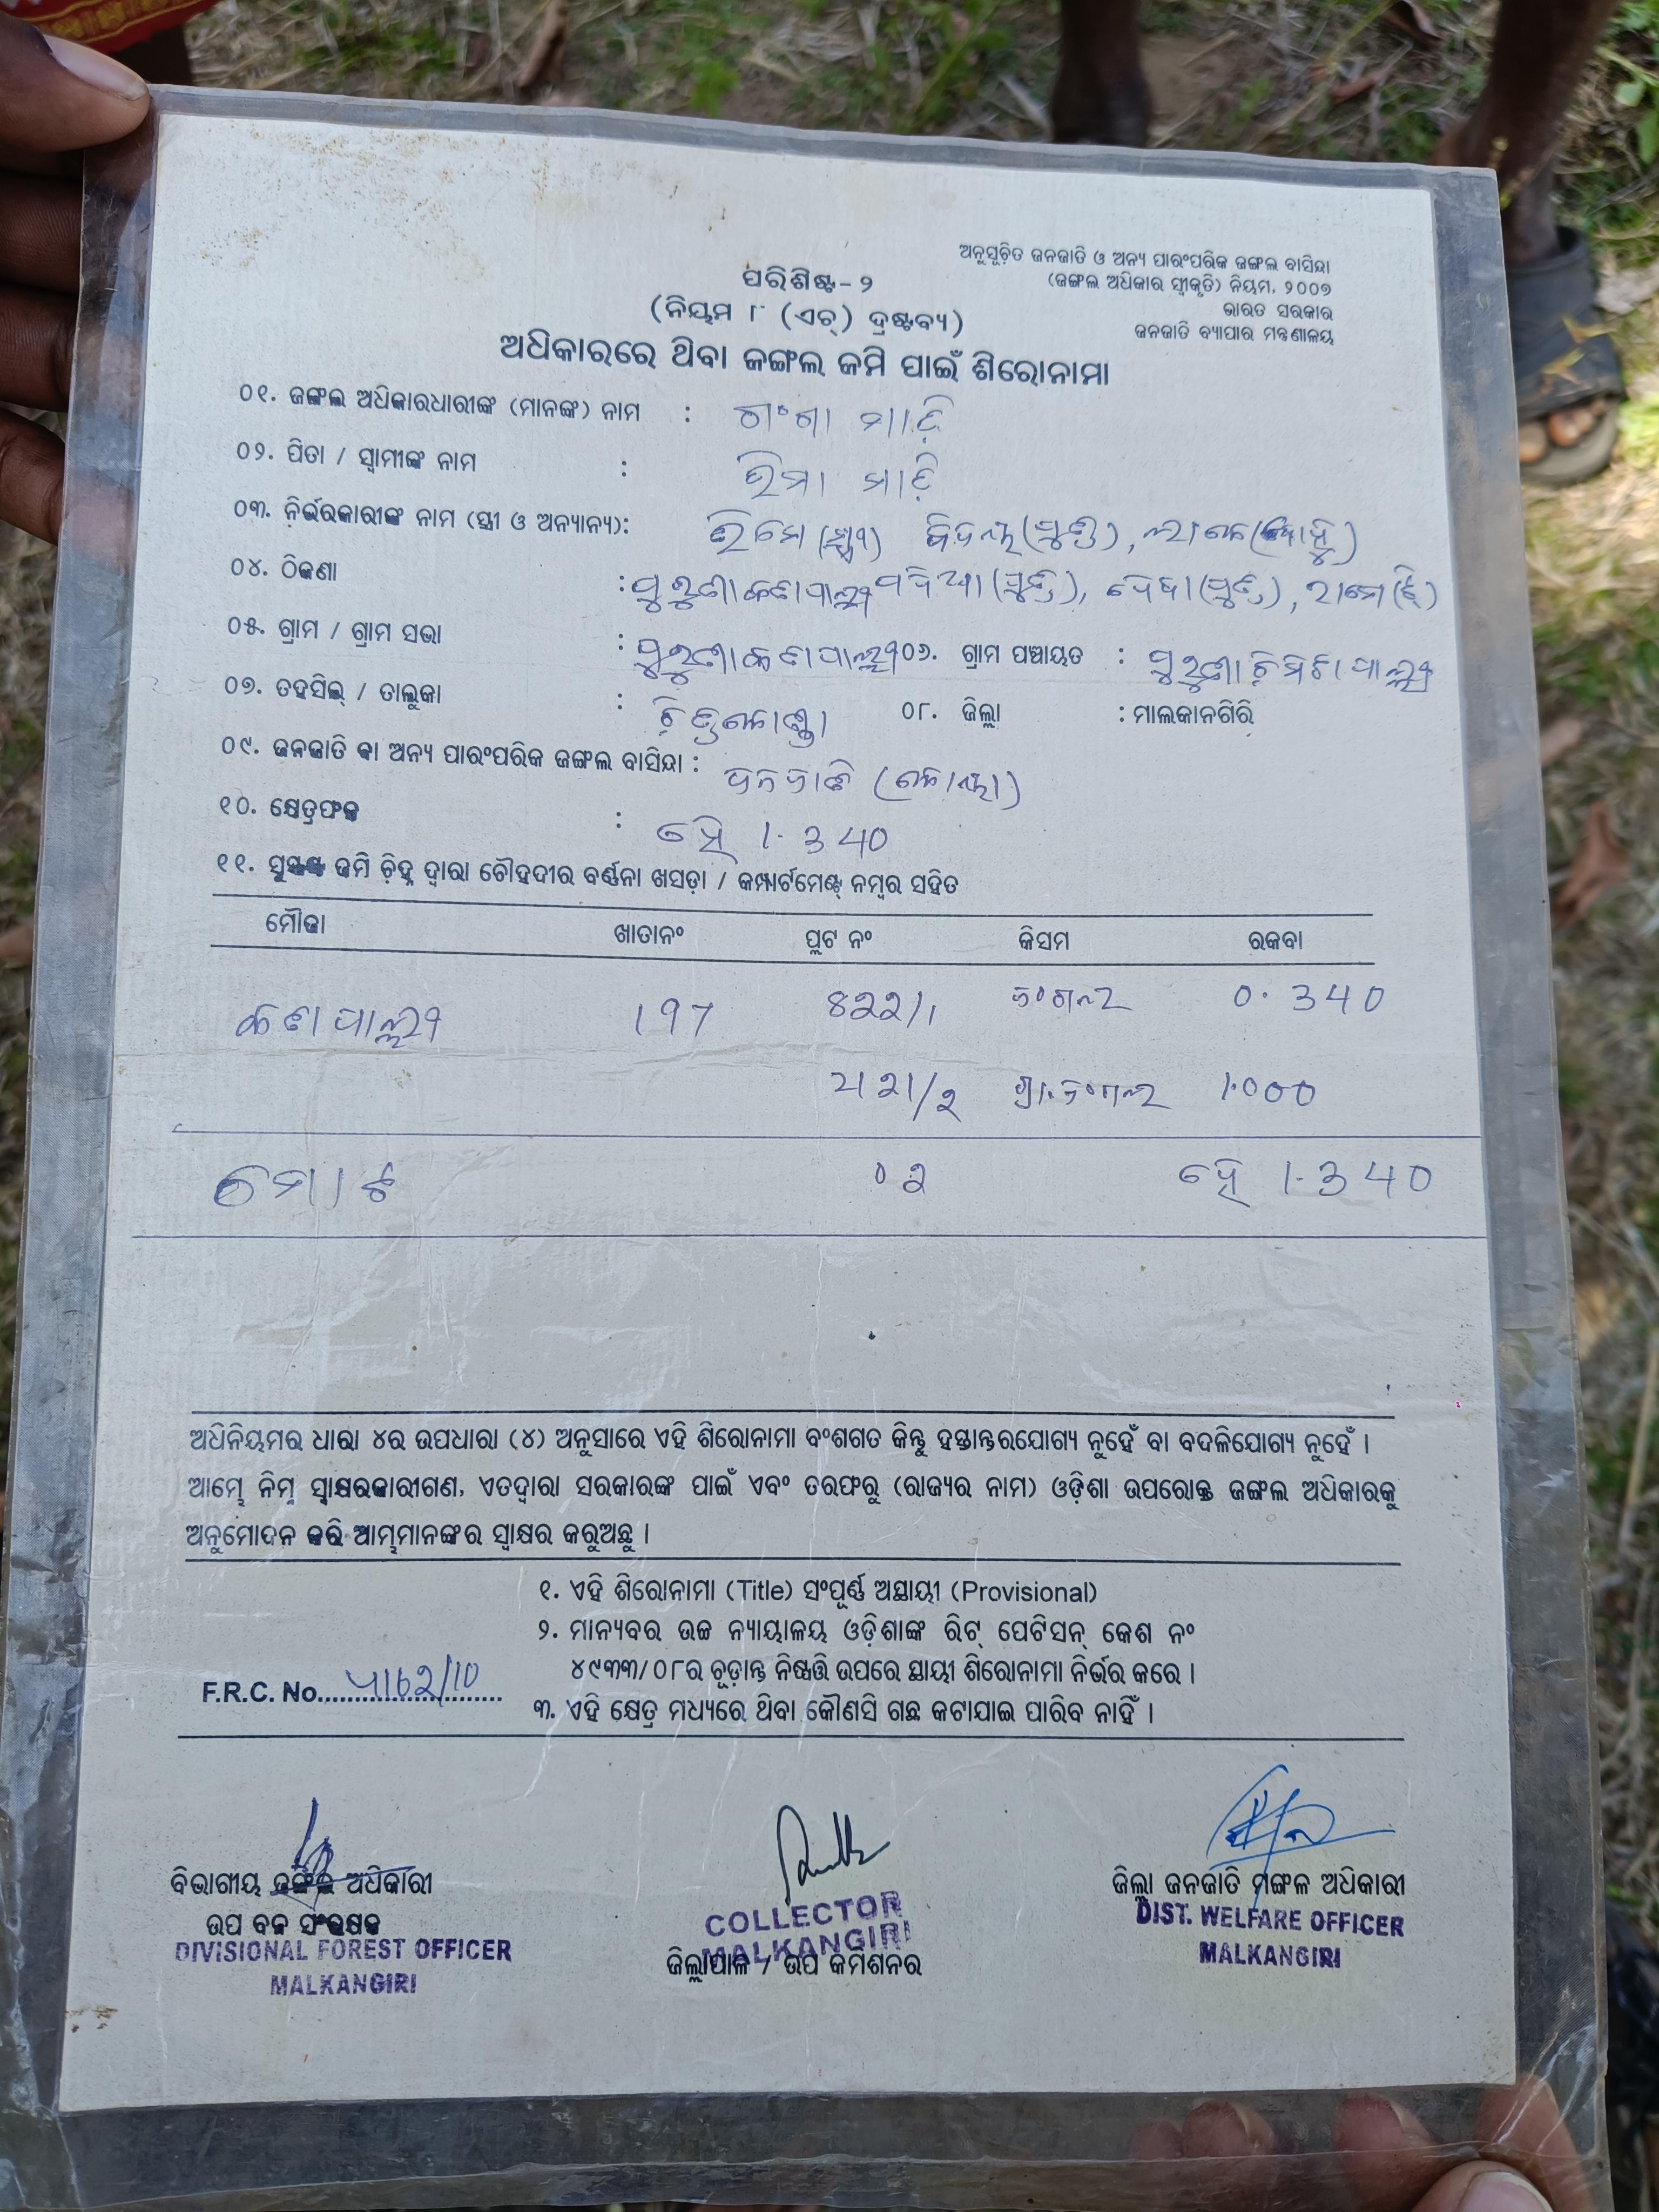 ଅନୁସୂଚିତ ଜନଜାତି ଓ ଅନ୍ୟ ପାରଂପରିକ ଜଙ୍ଗଲ ବାସିନ୍ଦା
(ଜଙ୍ଗଲ ଅଧିକାର ସ୍ୱୀକୃତି) ନିୟମ, ୨୦୦୭
ଭାରତ ସରକାର
ଜନଜାତି ବ୍ୟାପାର ମନ୍ତ୍ରଣାଳୟ
ପରିଶିଷ୍ଟ-୨
(ନିୟମ ୮ (ଏଚ୍) ଦ୍ରଷ୍ଟବ୍ୟ)
ଅଧିକାରରେ ଥିବା ଜଙ୍ଗଲ ଜମି ପାଇଁ ଶିରୋନାମା
୦୧. ଜଙ୍ଗଲ ଅଧିକାରଧାରୀଙ୍କ (ମାନଙ୍କ) ନାମ : ଗଂଗା ମାଢ଼ି
୦୨. ପିତା / ସ୍ୱାମୀଙ୍କ ନାମ : ଭିମା ମାଢ଼ି
୦୩. ନିର୍ଭରକାରୀଙ୍କ ନାମ (ସ୍ତ୍ରୀ ଓ ଅନ୍ୟାନ୍ୟ): ଭିମେ (ସ୍ତ୍ରୀ)
୦୪. ଠିକଣା : ପୁରୁଣା କଟାପାଲ୍ଲୀ
୦୫. ଗ୍ରାମ / ଗ୍ରାମ ସଭା : ପୁରୁଣା କଟାପାଲ୍ଲୀ ୦୬. ଗ୍ରାମ ପଞ୍ଚାୟତ : ପୁରୁଣା ଚିମିଟାପାଲ୍ଲୀ
୦୭. ତହସିଲ୍ / ତାଲୁକା : ଚିତ୍ରକୋଣ୍ଡା ୦୮. ଜିଲ୍ଲା : ମାଲକାନଗିରି
୦୯. ଜନଜାତି ବା ଅନ୍ୟ ପାରଂପରିକ ଜଙ୍ଗଲ ବାସିନ୍ଦା : ଜନଜାତି (କୋୟା)
୧୦. କ୍ଷେତ୍ରଫଳ : ହେ 1.340
୧୧. ସୁସ୍ପଷ୍ଟ ଜମି ଚିହ୍ନ ଦ୍ୱାରା ଚୌହଦୀର ବର୍ଣ୍ଣନା ଖସଡ଼ା / କମ୍ପାର୍ଟମେଣ୍ଟ୍ ନମ୍ବର ସହିତ
ମୌଜା ଖାତାନଂ ପ୍ଲଟ ନଂ କିସମ ରକବା
କଟାପାଲ୍ଲୀ 197 ଜଂଗଲ 0.340
ଗ୍ରା.ଜଂଗଲ 1.000
ମୋଟ ୦୨ ହେ 1.340
ଅଧିନିୟମର ଧାରା ୪ର ଉପଧାରା (୪) ଅନୁସାରେ ଏହି ଶିରୋନାମା ବଂଶଗତ କିନ୍ତୁ ହସ୍ତାନ୍ତରଯୋଗ୍ୟ ନୁହେଁ ବା ବଦଳିଯୋଗ୍ୟ ନୁହେଁ ।
ଆମ୍ଭେ ନିମ୍ନ ସ୍ୱାକ୍ଷରକାରୀଗଣ, ଏତଦ୍ୱାରା ସରକାରଙ୍କ ପାଇଁ ଏବଂ ତରଫରୁ (ରାଜ୍ୟର ନାମ) ଓଡ଼ିଶା ଉପରୋକ୍ତ ଜଙ୍ଗଲ ଅଧିକାରକୁ
ଅନୁମୋଦନ କରି ଆମ୍ଭମାନଙ୍କର ସ୍ୱାକ୍ଷର କରୁଅଛୁ ।
୧. ଏହି ଶିରୋନାମା (Title) ସଂପୂର୍ଣ୍ଣ ଅସ୍ଥାୟୀ (Provisional)
୨. ମାନ୍ୟବର ଉଚ୍ଚ ନ୍ୟାୟାଳୟ ଓଡ଼ିଶାଙ୍କ ରିଟ୍ ପେଟିସନ୍ କେଶ ନଂ
୪୯୩୩/୦୮ର ଚୂଡ଼ାନ୍ତ ନିଷ୍ପତ୍ତି ଉପରେ ସ୍ଥାୟୀ ଶିରୋନାମା ନିର୍ଭର କରେ ।
F.R.C. No.
୩. ଏହି କ୍ଷେତ୍ର ମଧ୍ୟରେ ଥିବା କୌଣସି ଗଛ କଟାଯାଇ ପାରିବ ନାହିଁ ।
ବିଭାଗୀୟ ଜଙ୍ଗଲ ଅଧିକାରୀ
ଉପ ବନ ସଂରକ୍ଷକ
DIVISIONAL FOREST OFFICER
MALKANGIRI
COLLECTOR
MALKANGIRI
ଜିଲ୍ଲାପାଳ / ଉପ କମିଶନର
ଜିଲ୍ଲା ଜନଜାତି ମଙ୍ଗଳ ଅଧିକାରୀ
DIST. WELFARE OFFICER
MALKANGIRI